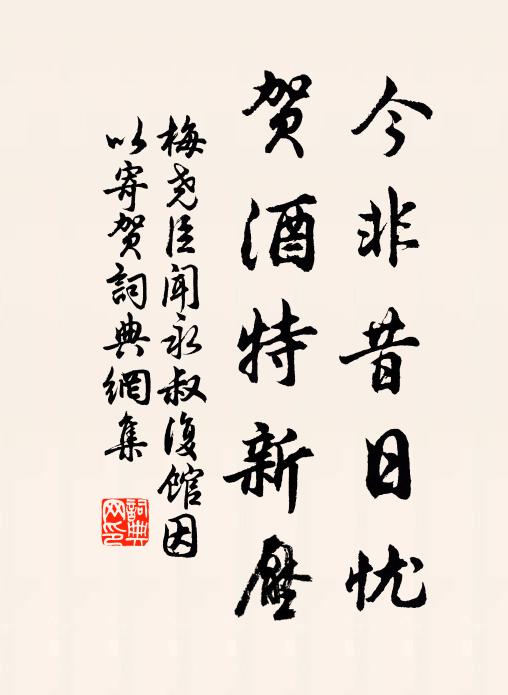 今非昔日忧
贺酒特新压
梅尧臣闻永叔復馆因
以寄贺詞典網集
詞典网印